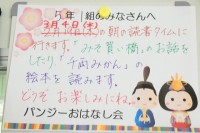 5年1組のみなさんへ
3月4日(木)の朝の読書タイムに
行きます。「みそ買い橋」のお話を
したり、「千両みかん」の
絵本を読みます。
どうぞ お楽しみにね。
パンジーおはなし会